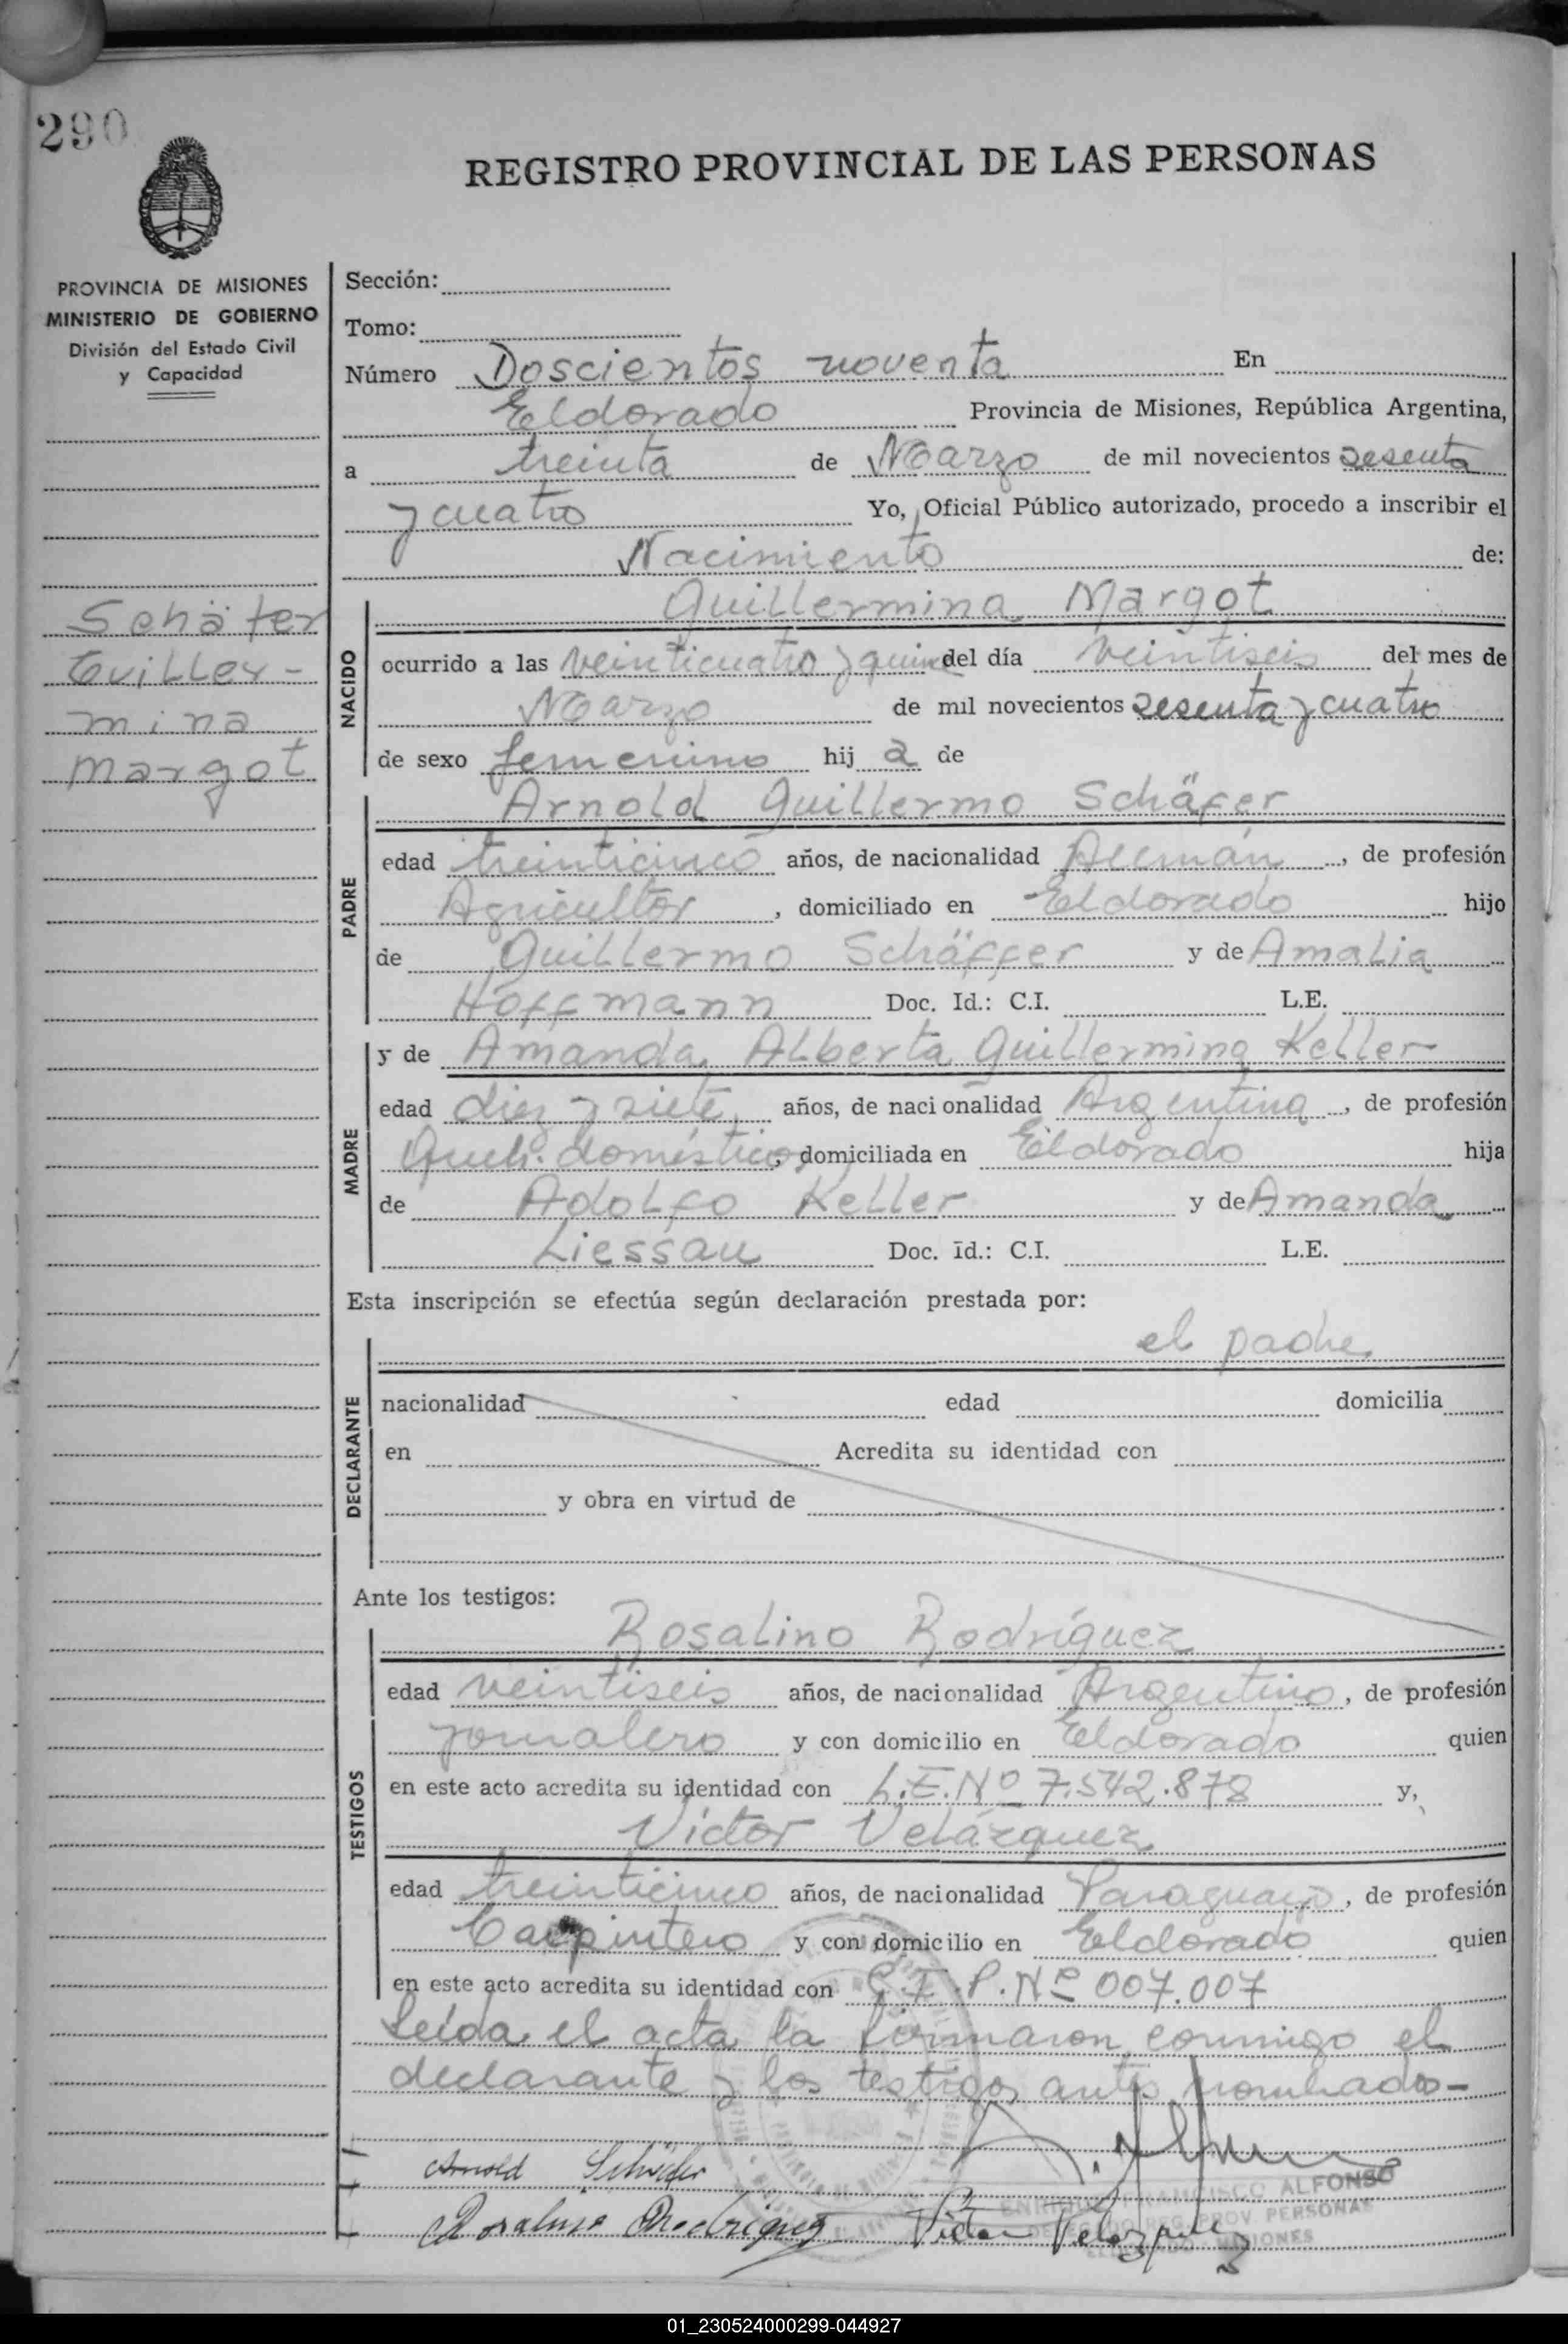 290
REGISTRO PROVINCIAL DE LAS PERSONAS
PROVINCIA DE MISIONES
MINISTERIO DE GOBIERNO
División del Estado Civil
y Capacidad
Schäfer
Guiller-
mina
Margot
Sección:
Tomo:
Número Doscientos noventa En
Eldorado Provincia de Misiones, República Argentina,
a treinta de Marzo de mil novecientos sesenta
y cuatro Yo, Oficial Público autorizado, procedo a inscribir el
Nacimiento de:
NACIDO
Guillermina Margot
ocurrido a las veinticuatro y quince del día veintiseis del mes de
Marzo de mil novecientos sesenta y cuatro
de sexo femenino hij a de
PADRE
Arnold Guillermo Schäfer
edad treinticinco años, de nacionalidad Alemán, de profesión
Agricultor, domiciliado en Eldorado hijo
de Guillermo Schäffer y de Amalia
Hoffmann Doc. Id.: C.I. L.E.
MADRE
y de Amanda Alberta Guillermina Keller
edad diez y siete años, de nacionalidad Argentina, de profesión
Queh. domésticos, domiciliada en Eldorado hija
de Adolfo Keller y de Amanda
Liessau Doc. Id.: C.I. L.E.
Esta inscripción se efectúa según declaración prestada por:
DECLARANTE
el padre
nacionalidad edad domicilia
en Acredita su identidad con
y obra en virtud de
Ante los testigos:
TESTIGOS
Rosalino Rodríguez
edad veintiseis años, de nacionalidad Argentino, de profesión
jornalero y con domicilio en Eldorado quien
en este acto acredita su identidad con L.E.Nº 7.542.878 y,
Víctor Velázquez
edad treinticinco años, de nacionalidad Paraguayo, de profesión
Carpintero y con domicilio en Eldorado quien
en este acto acredita su identidad con C.I.P.Nº 007.007
Leída el acta la firmaron conmigo el
declarante y los testigos antes nombrados-
Arnold Schäfer
FRANCISCO ALFONSO
REG. PROV. PERSONAS
Rosalino Rodriguez Victor Velazquez
01_230524000299-044927